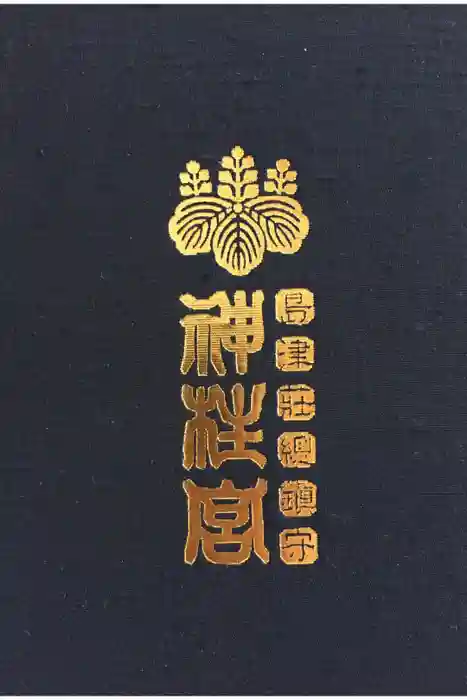 島津荘総鎮守
神柱宮